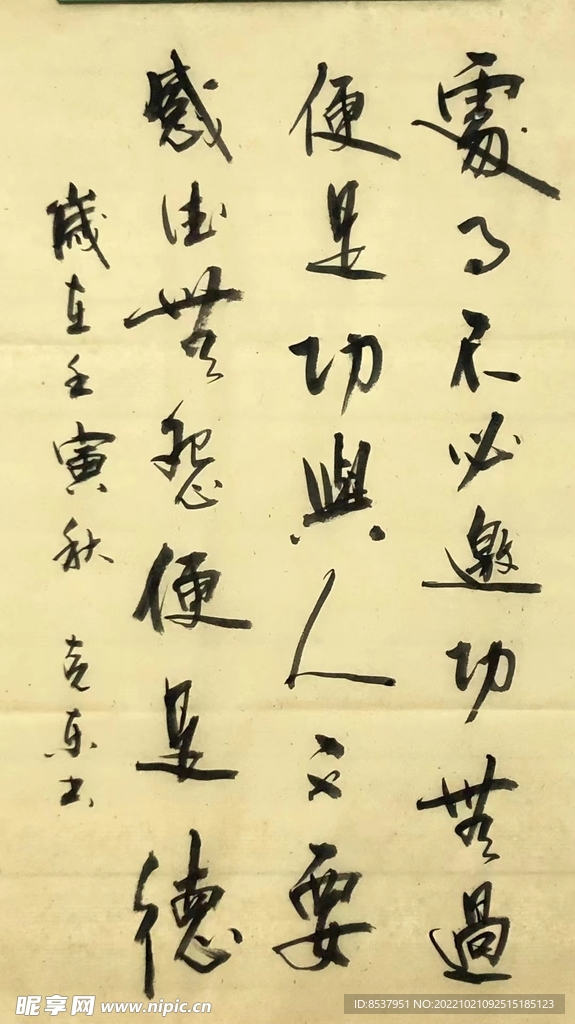 處事不必邀功無過
便是功與人不要
感德無怨便是德
歲在壬寅秋 克东书
昵享网 www.nipic.cn
ID:8537951 NO:20221021092515185123